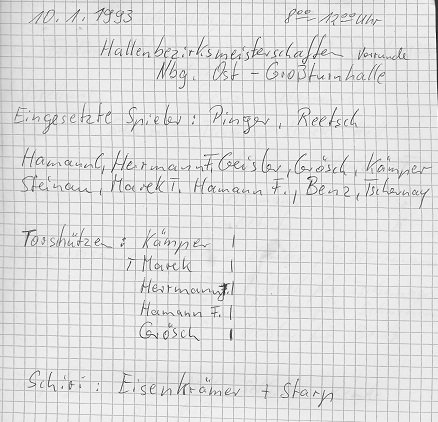 10.1.1993 8⁰⁰-12⁰⁰ Uhr
Hallenbezirksmeisterschaften Vorrunde
Nbg. Ost - Großturnhalle
Eingesetzte Spieler: Pinger, Reetsch
Hamann C, Herrmann F, Geisler, Grösch, Kämper
Steinau, Marek T. Hamann F., Benz, Tschernay
Torschützen: Kämper |
T Marek |
Herrmann F. |
Hamann F. |
Grösch |
Schiri: Eisenkrämer + Starp